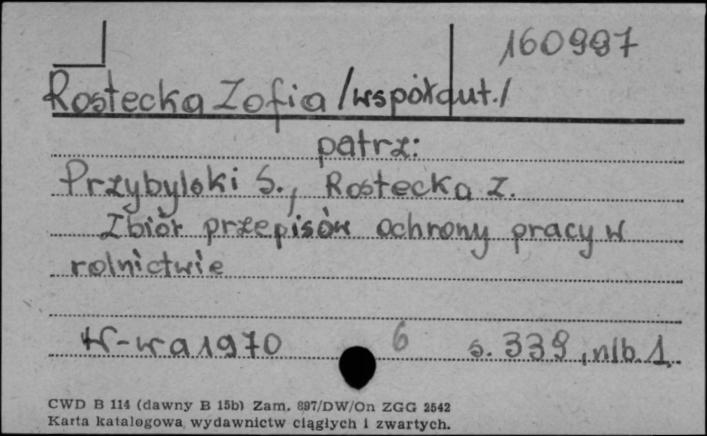 160997
Rostecka Zofia /współaut./
patrz:
Przybylski S., Rostecka Z.
Zbiór przepisów ochrony pracy w
rolnictwie
W-wa 1970 6 s. 339, nlb. 1.
CWD B 114 (dawny B 15b) Zam. 897/DW/On ZGG 2542
Karta katalogowa wydawnictw ciągłych i zwartych.